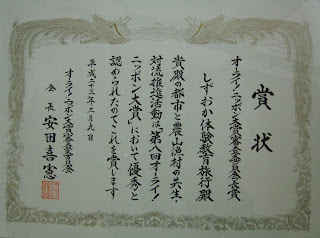 賞状
オーライ!ニッポン大賞審査委員会長賞
しずおか体験教育旅行殿
貴殿の都市と農山漁村の共生・
対流推進活動は「第八回オーライ!
ニッポン大賞」において優秀と
認められたのでこれを賞します
平成二十三年二月
オーライ!ニッポン大賞審査委員会
会長 安田喜憲